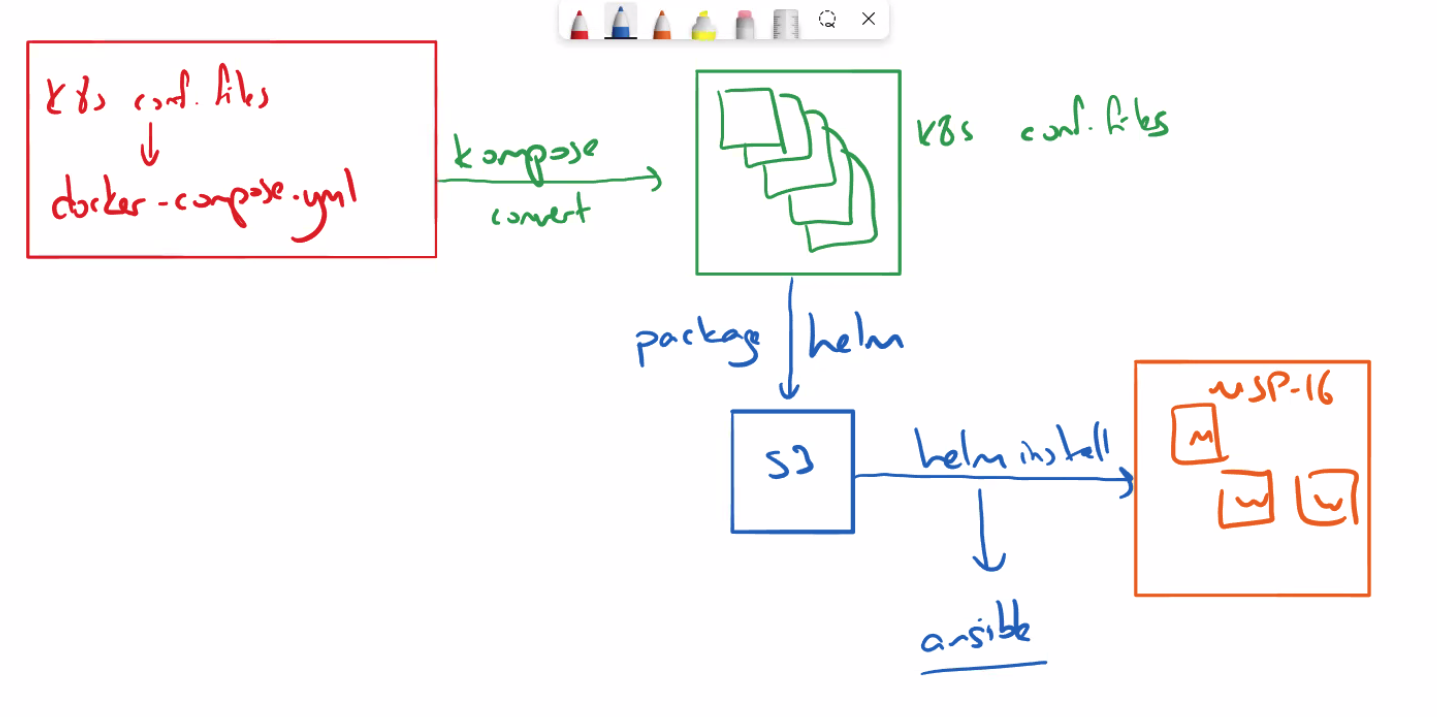 K8s conf. files
docker-compose.yml
kompose
convert
K8s conf. files
package helm
S3
helm install
ansible
MSP-16
M
W W